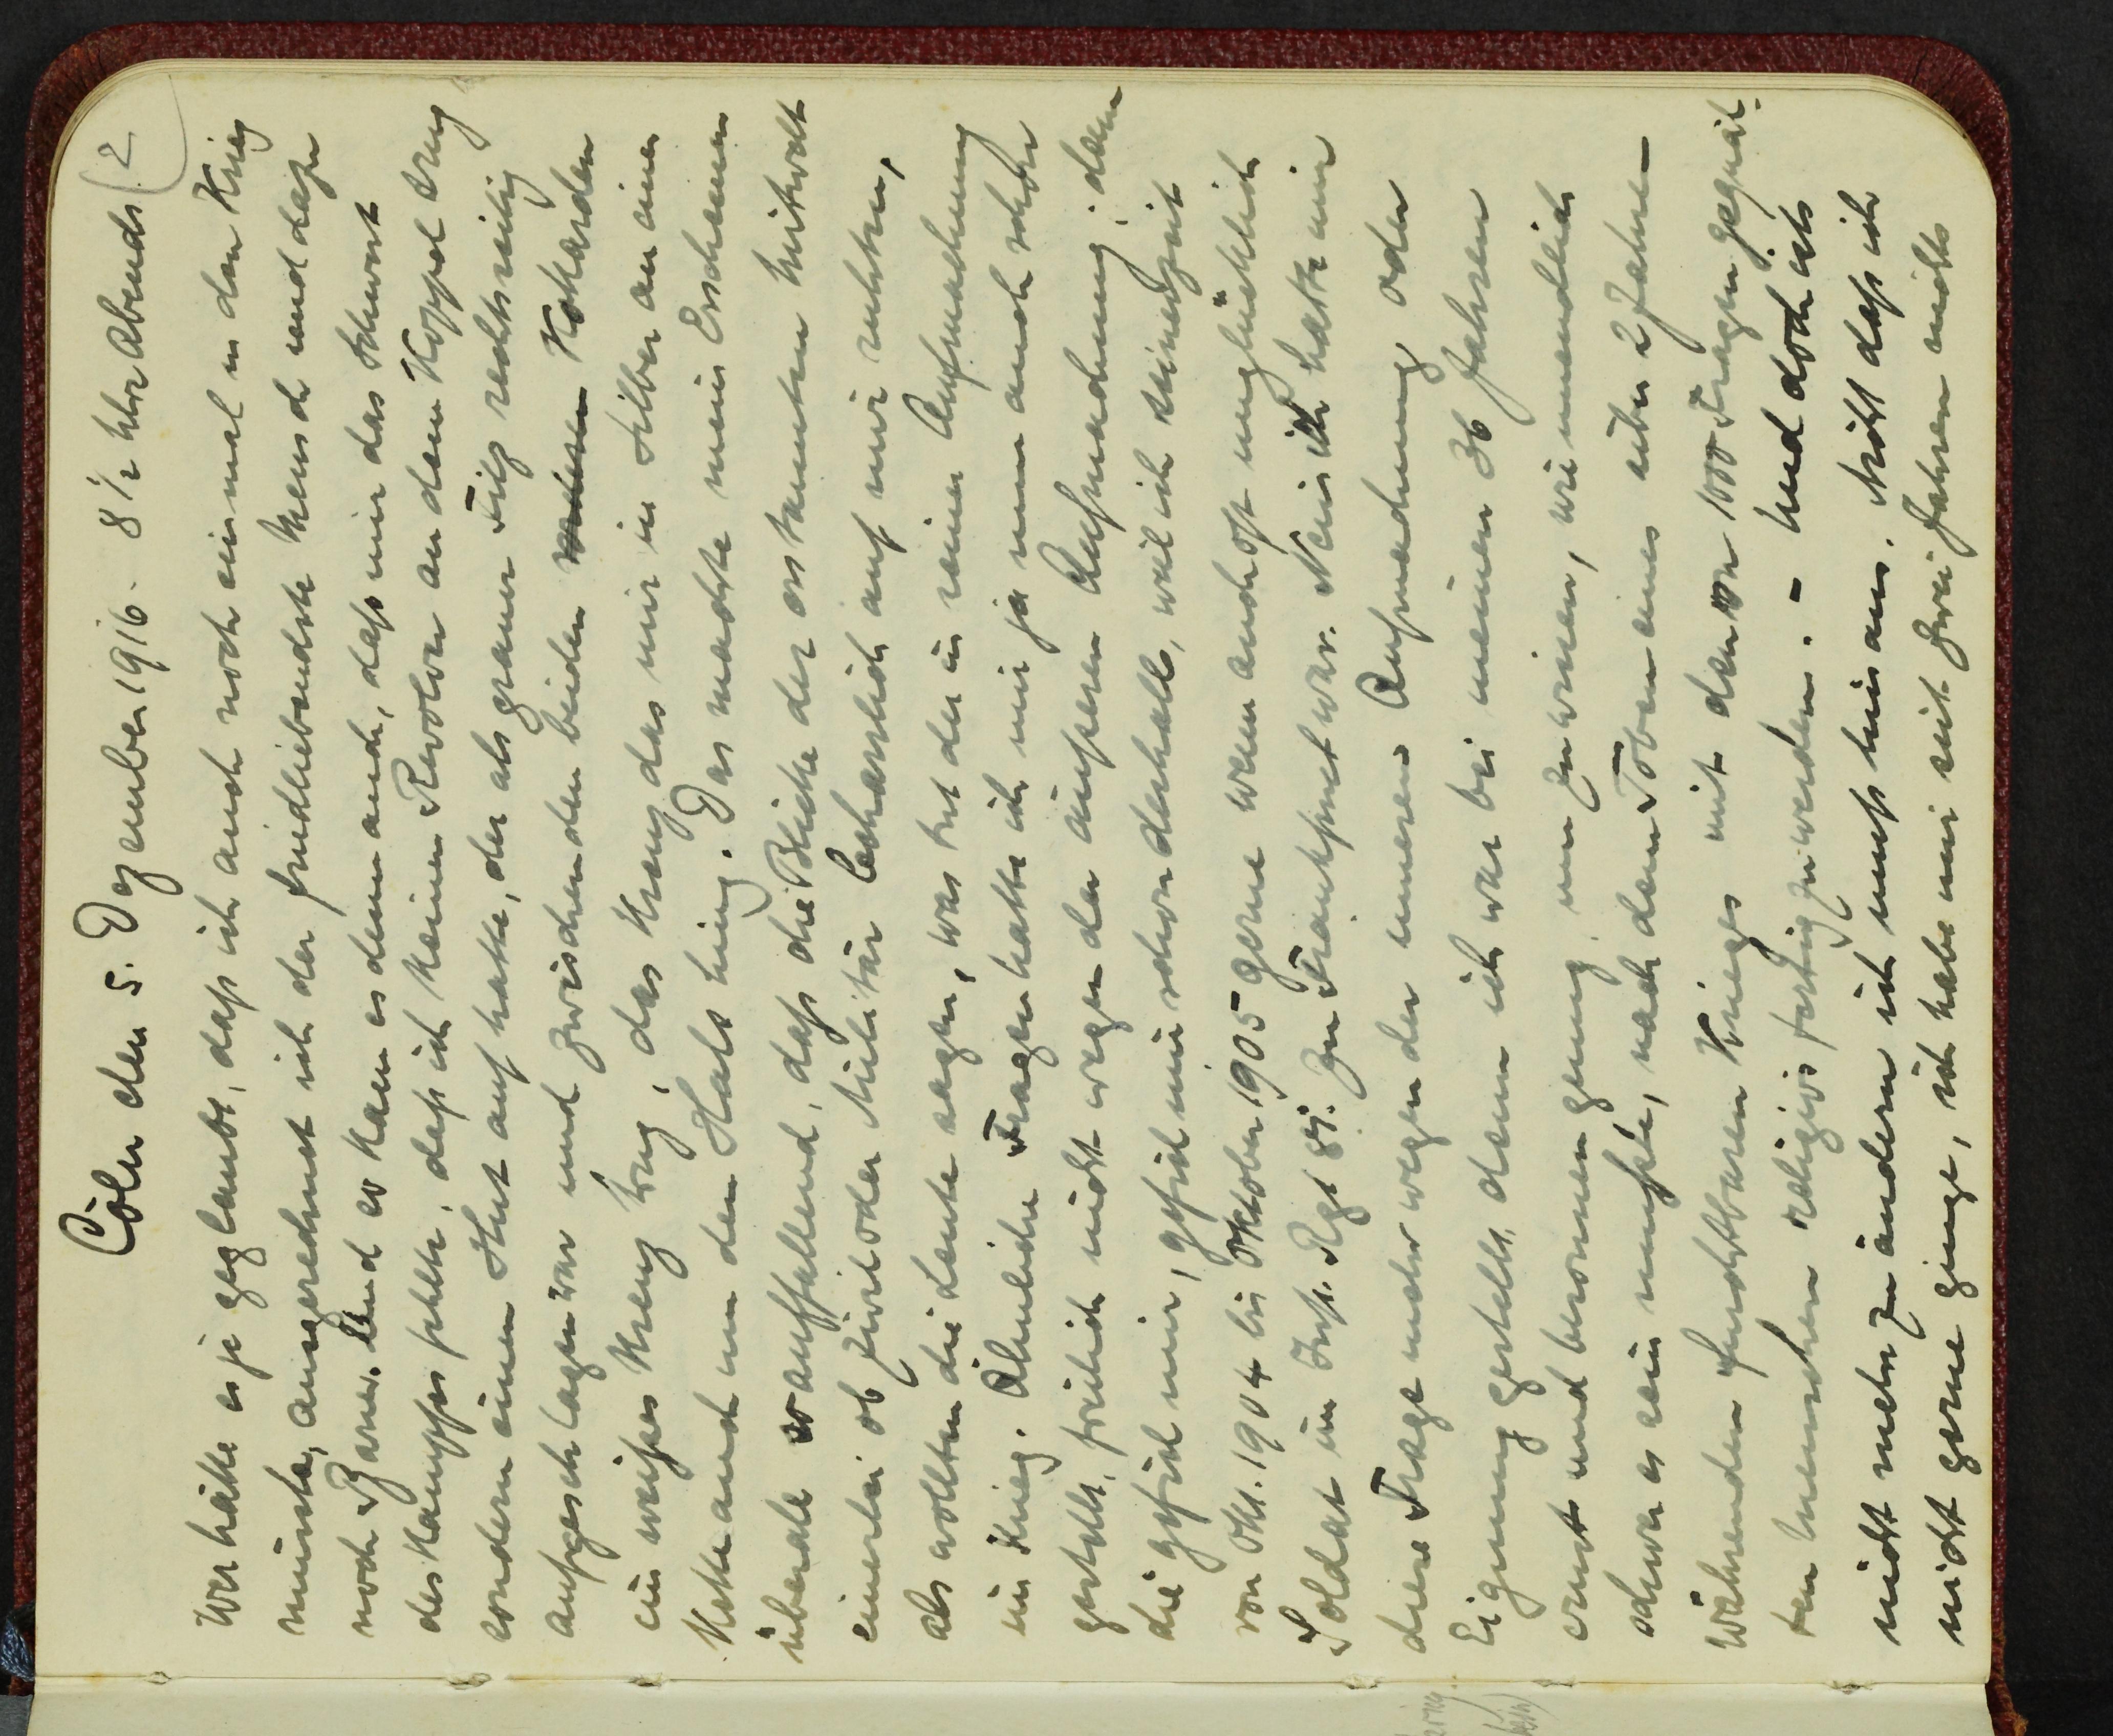 2
Cöln den 5. Dezember 1916. 8 1/2 Uhr Abends
Wer hätte es je geglaubt, dass ich auch noch einmal in den Krieg
müsste, ausgerechnet ich der friedliebendste Mensch und dazu
noch Pfarrer. Und so kam es denn auch, dass mir das Schwert
des Kampfes fehlte, dass ich keinen Revolver an dem Koppel trug
sondern einen Hut auf hatte, der als grauer Filz rechtseitig
aufgeschlagen war und zwischen den beiden Kokarden
ein weißes Kreuz trug, das Kreuz das mir in Silber an einer
Kette auch um den Hals hing. Das machte mein Erscheinen
überall so auffallend, dass die Blicke der erstaunten Mitwelt
einerlei ob Zivil oder Militär beharrlich auf mir ruhten,
als wollten die Leute sagen, was tut der in seiner Aufmachung
im Krieg. Ähnliche Fragen hatte ich mir ja nun auch schon
gestellt, freilich nicht wegen der äußeren Aufmachung; denn
die gefiel mir, gefiel mir schon deshalb, weil ich seinerzeit
von Okt. 1904 bis Oktober 1905 gerne wenn auch oft unglücklich
Soldat im Inft. Regt 81. zu Frankfurt war. Nein ich hatte mir
diese Frage mehr wegen der inneren Aufmachung oder
Eignung gestellt, denn ich war bei meinen 36 Jahren
ernst und besonnen genug, um zu wissen, wie unendlich
schwer es sein musste, nach dem Toben eines über 2 Jahre
währenden furchtbaren Krieges mit den von 1000 Fragen gequäl-
ten Menschen religiös fertig zu werden. - Und doch ists
nicht mehr zu ändern ich muss hinaus. Nicht dass ich
nicht gerne ginge, ich habe mir seit zwei Jahren nichts